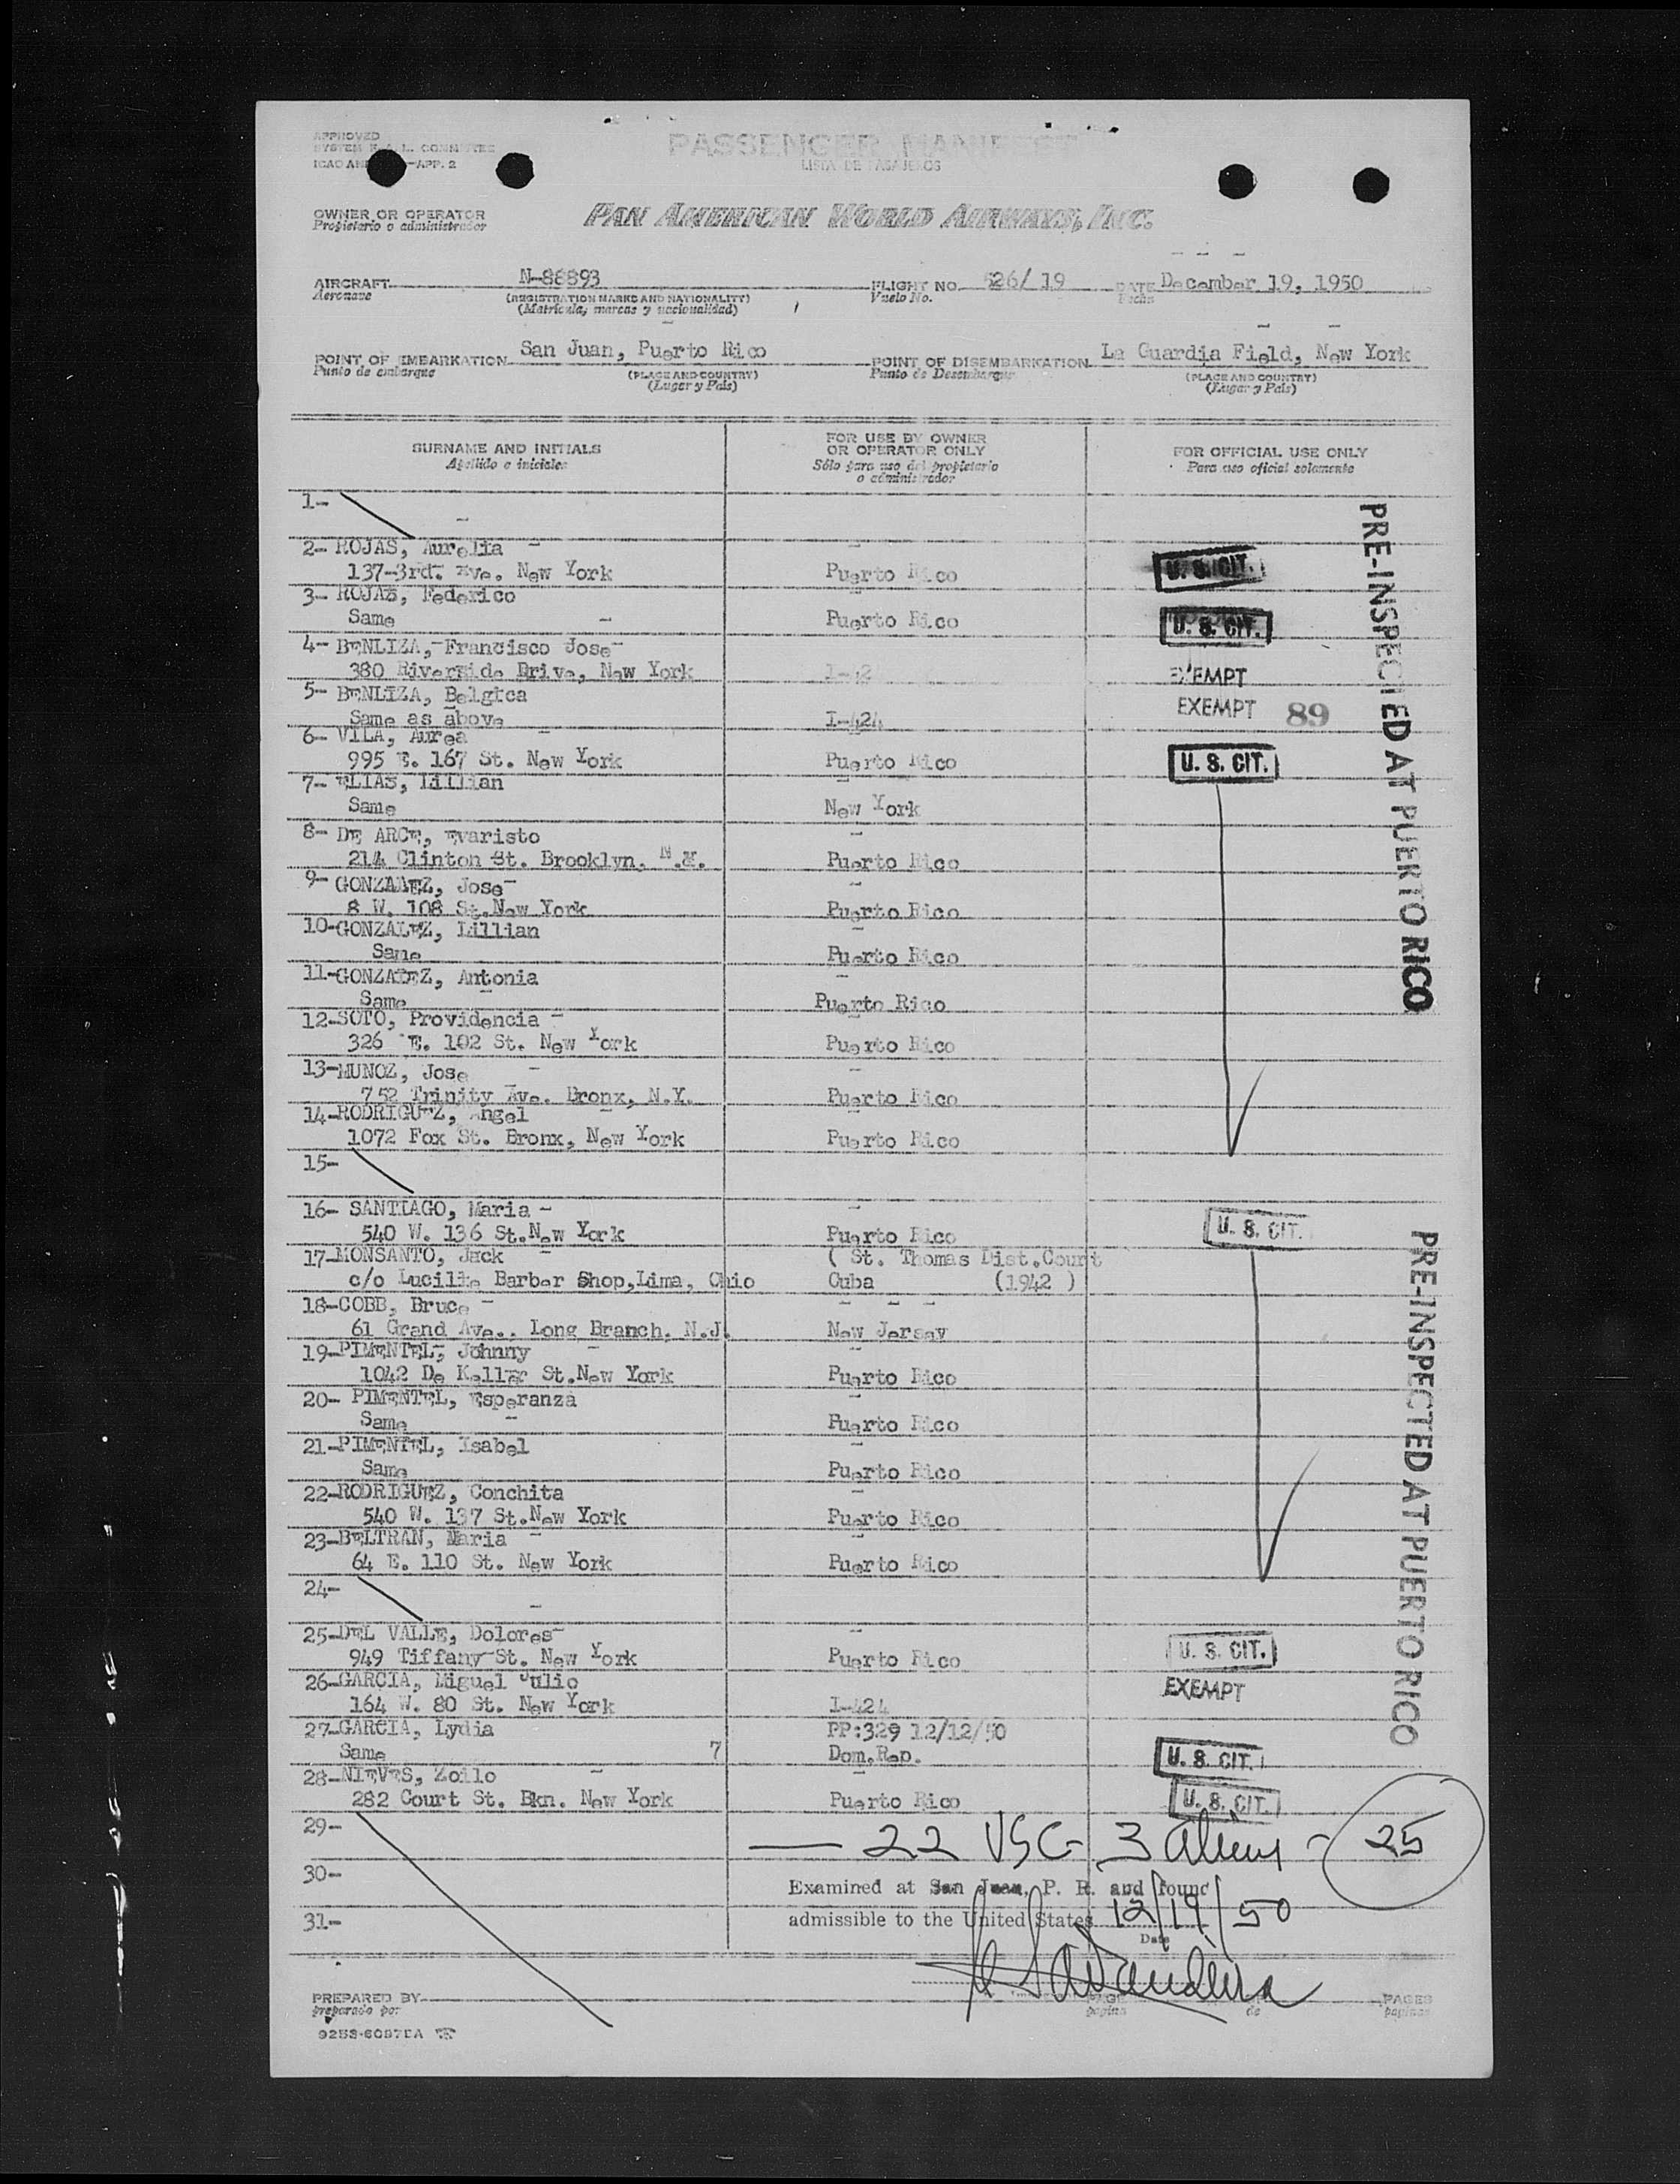 APPROVED
SYSTEM F. A. L. COMMITTEE
ICAO AN -APP. 2
PASSENGER MANIFEST
LISTA DE PASAJEROS
OWNER OR OPERATOR
Propietario o administrador
PAN AMERICAN WORLD AIRWAYS, INC.
AIRCRAFT N-88893 FLIGHT NO. 526/19 DATE December 19, 1950
Aeronave (REGISTRATION MARKS AND NATIONALITY) Vuelo No. Fecha
(Matrícula, marcas y nacionalidad)
POINT OF EMBARKATION San Juan, Puerto Rico POINT OF DISEMBARKATION La Guardia Field, New York
Punto de embarque (PLACE AND COUNTRY) Punto de Desembarque (PLACE AND COUNTRY)
(Lugar y País) (Lugar y País)
SURNAME AND INITIALS FOR USE BY OWNER OR OPERATOR ONLY FOR OFFICIAL USE ONLY
Apellido e iniciales Sólo para uso del propietario o administrador Para uso oficial solamente
1-
2- ROJAS, Aurelia
137-3rd. Ave. New York Puerto Rico U. S. CIT.
3- ROJAS, Federico
Same Puerto Rico U. S. CIT.
4- BENLIZA, Francisco Jose
380 Riverside Drive, New York I-42 EXEMPT
5- BENLIZA, Belgica
Same as above I-424 EXEMPT 89
6- VILA, Aurea
995 E. 167 St. New York Puerto Rico U. S. CIT.
7- ELIAS, Lillian
Same New York
8- DE ARCE, Evaristo
214 Clinton St. Brooklyn, N.Y. Puerto Rico
9- GONZALEZ, Jose
8 W. 108 St.New York Puerto Rico
10-GONZALEZ, Lillian
Same Puerto Rico
11-GONZALEZ, Antonia
Same Puerto Rico
12-SOTO, Providencia
326 E. 102 St. New York Puerto Rico
13-MUNOZ, Jose
752 Trinity Ave. Bronx, N.Y. Puerto Rico
14-RODRIGUEZ, Angel
1072 Fox St. Bronx, New York Puerto Rico
15-
16- SANTIAGO, Maria
540 W. 136 St.New York Puerto Rico U. S. CIT.
17-MONSANTO, Jack ( St. Thomas Dist.Court
c/o Lucille Barber Shop,Lima, Ohio Cuba (1942 )
18-COBB, Bruce
61 Grand Ave., Long Branch, N.J. New Jersey
19-PIMENTEL, Johnny
1042 De Keller St.New York Puerto Rico
20- PIMENTEL, Esperanza
Same Puerto Rico
21-PIMENTEL, Isabel
Same Puerto Rico
22-RODRIGUEZ, Conchita
540 W. 137 St.New York Puerto Rico
23-BELTRAN, Maria
64 E. 110 St. New York Puerto Rico
24-
25-DEL VALLE, Dolores
949 Tiffany St. New York Puerto Rico U. S. CIT.
26-GARCIA, Miguel Julio
164 W. 80 St. New York I-424 EXEMPT
27-GARCIA, Lydia PP:329 12/12/50
Same 7 Dom.Rep. U. S. CIT.
28-NIEVES, Zoilo
282 Court St. Bkn. New York Puerto Rico U. S. CIT.
29- — 22 USC 3 aliens - 25
30-
Examined at San Juan, P. R. and found
31- admissible to the United States 12/19/50
Date
PREPARED BY PAGE PAGES
preparado por página de páginas
PRE-INSPECTED AT PUERTO RICO
PRE-INSPECTED AT PUERTO RICO